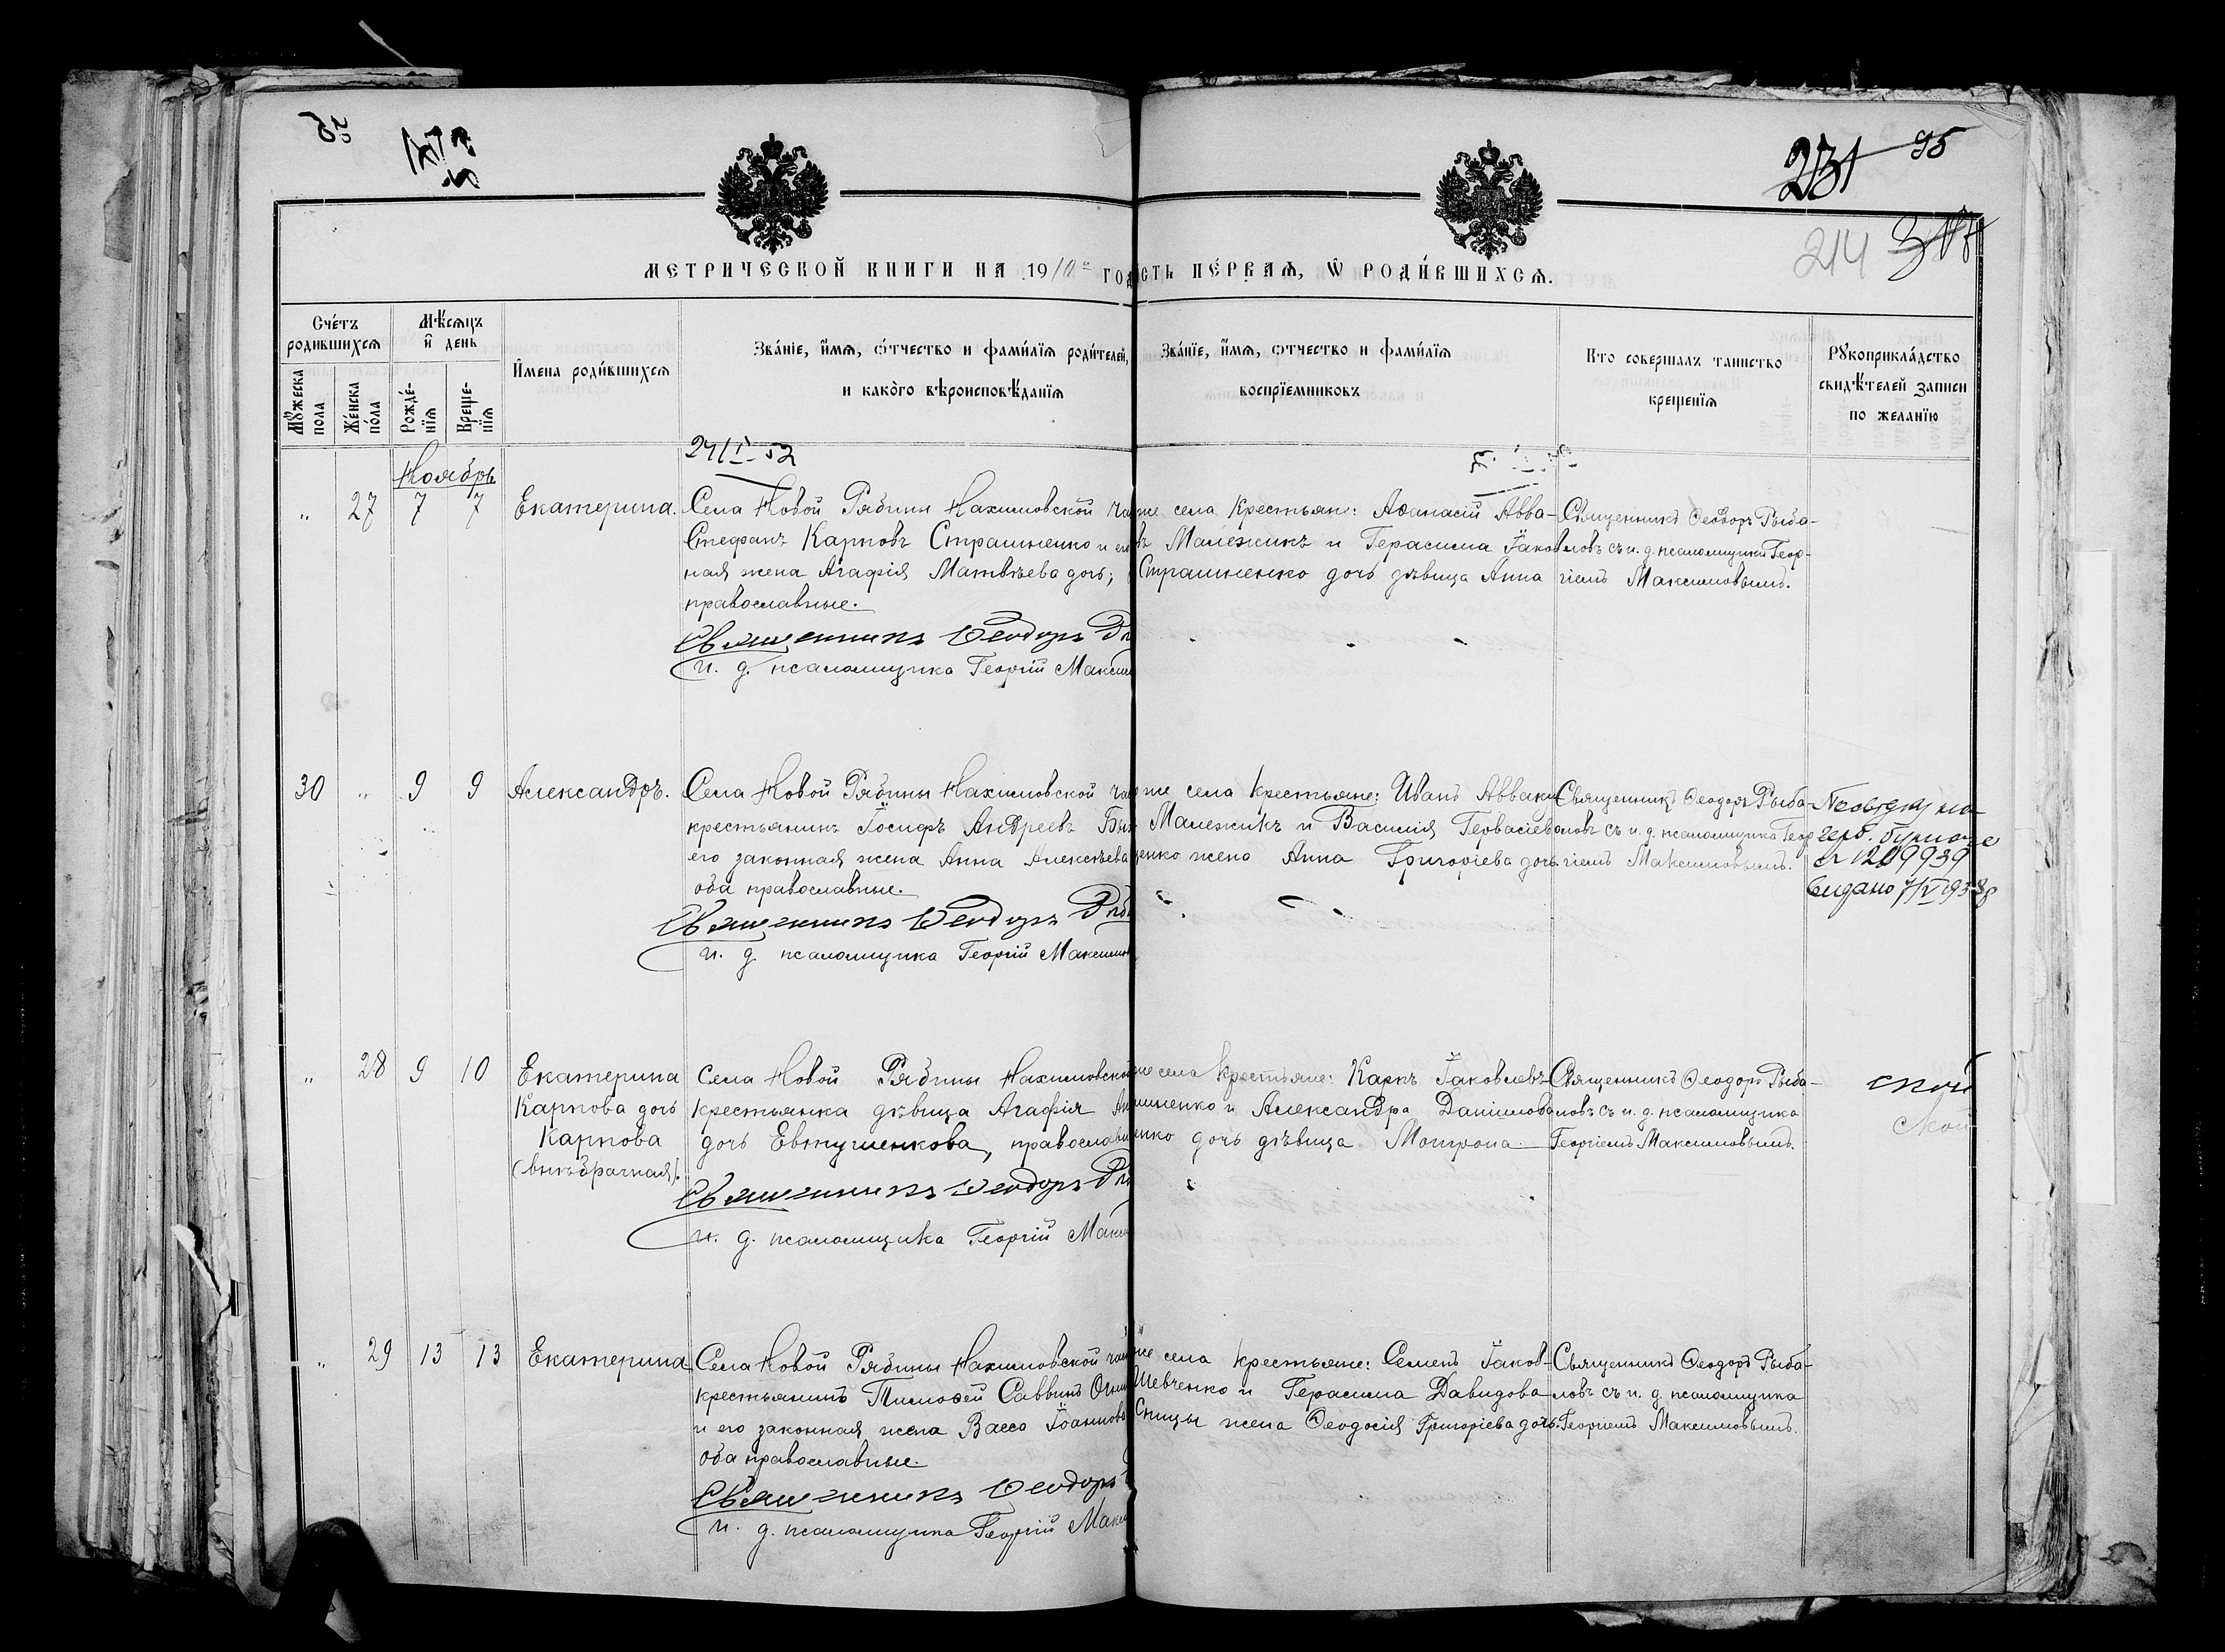 231 95
214
МЕТРИЧЕСКОЙ КНИГИ НА 1910 ГО
СТЬ ПЕ́РВАѦ, Ѡ҆ РОДИ́ВШИХСѦ.
Сче́тъ родившихсѧ
Мꙋжеска пола
Же́нска по́ла
Мѣ́сѧцъ и҆ день
Рожде́нїѧ
Креще́нїѧ
И҆мена роди́вшихсѧ
Зва́нїе, и҆́мѧ, ѻ҆́тчество и фами́лїѧ роди́телей,
и како́го вѣроисповѣ́данїѧ
Зва́нїе, и҆́мѧ, ѻтчество и фами́лїѧ
воспрїемниковъ
Кто соверша́лъ таинство
крещенїѧ
Рꙋкоприкла́дство
свидѣ́телей записи
по желанїю
24/I-52
Ноябрь
" 27 7 7 Екатерина. Села Новой Рябины Нахимовской ча
Стефанъ Карповъ Страшненко и ег
ная жена Агафія Матвѣева дочь;
православные.
Священникъ Ѳеодоръ Ры
и. д. псаломщика Георгій Максим
же села крестьяне: Аѳанасій Авва-
въ Малежикъ и Герасима Іаков
Страшненко дочь дѣвица Анна
Священникъ Ѳеодоръ Рыба-
ловъ съ и. д. псаломщика Геор-
гіемъ Максимовымъ.
30 " 9 9 Александръ. Села Новой Рябины Нахимовской час
крестьянинъ Іосифъ Андреевъ
его законная жена Анна Алексѣева
оба православные.
Священникъ Ѳеодоръ Рыб
и. д. псаломщика Георгій Максимов
же села крестьяне: Иванъ Аввак
Малежикъ и Василія Гервасіев
енко жена Анна Григоріева дочь
Священникъ Ѳеодоръ Рыба-
ловъ съ и. д. псаломщика Геор
гіемъ Максимовымъ.
герб. бумаге
1209939
видано 7/V 193
" 28 9 10 Екатерина
Карпова дочь
Карпова
(внѣбрачная).
Села Новой Рябины Нахимовской
крестьянка дѣвица Агафія
дочь Евтушенкова, православн
Священникъ Ѳеодоръ Ры
и. д. псаломщика Георгій Макси
же села крестьяне: Карпъ Іаковлевъ
шненко и Александра Даніилова
енко дочь дѣвица Мотрона
Священникъ Ѳеодоръ Рыба-
ловъ съ и. д. псаломщика
Георгіемъ Максимовымъ.
" 29 13 13 Екатерина Села Новой Рябины Нахимовской час
крестьянинъ Тимоѳей Саввинъ
и его законная жена Васса Іоаннова
оба православные.
Священникъ Ѳеодоръ
и. д. псаломщика Георгій Макс
же села крестьяне: Семенъ Іаков-
Шевченко и Герасима Давидова
Сницы жена Ѳеодосія Григоріева дочь.
Священникъ Ѳеодоръ Рыба-
ловъ съ и. д. псаломщика
Георгіемъ Максимовымъ.